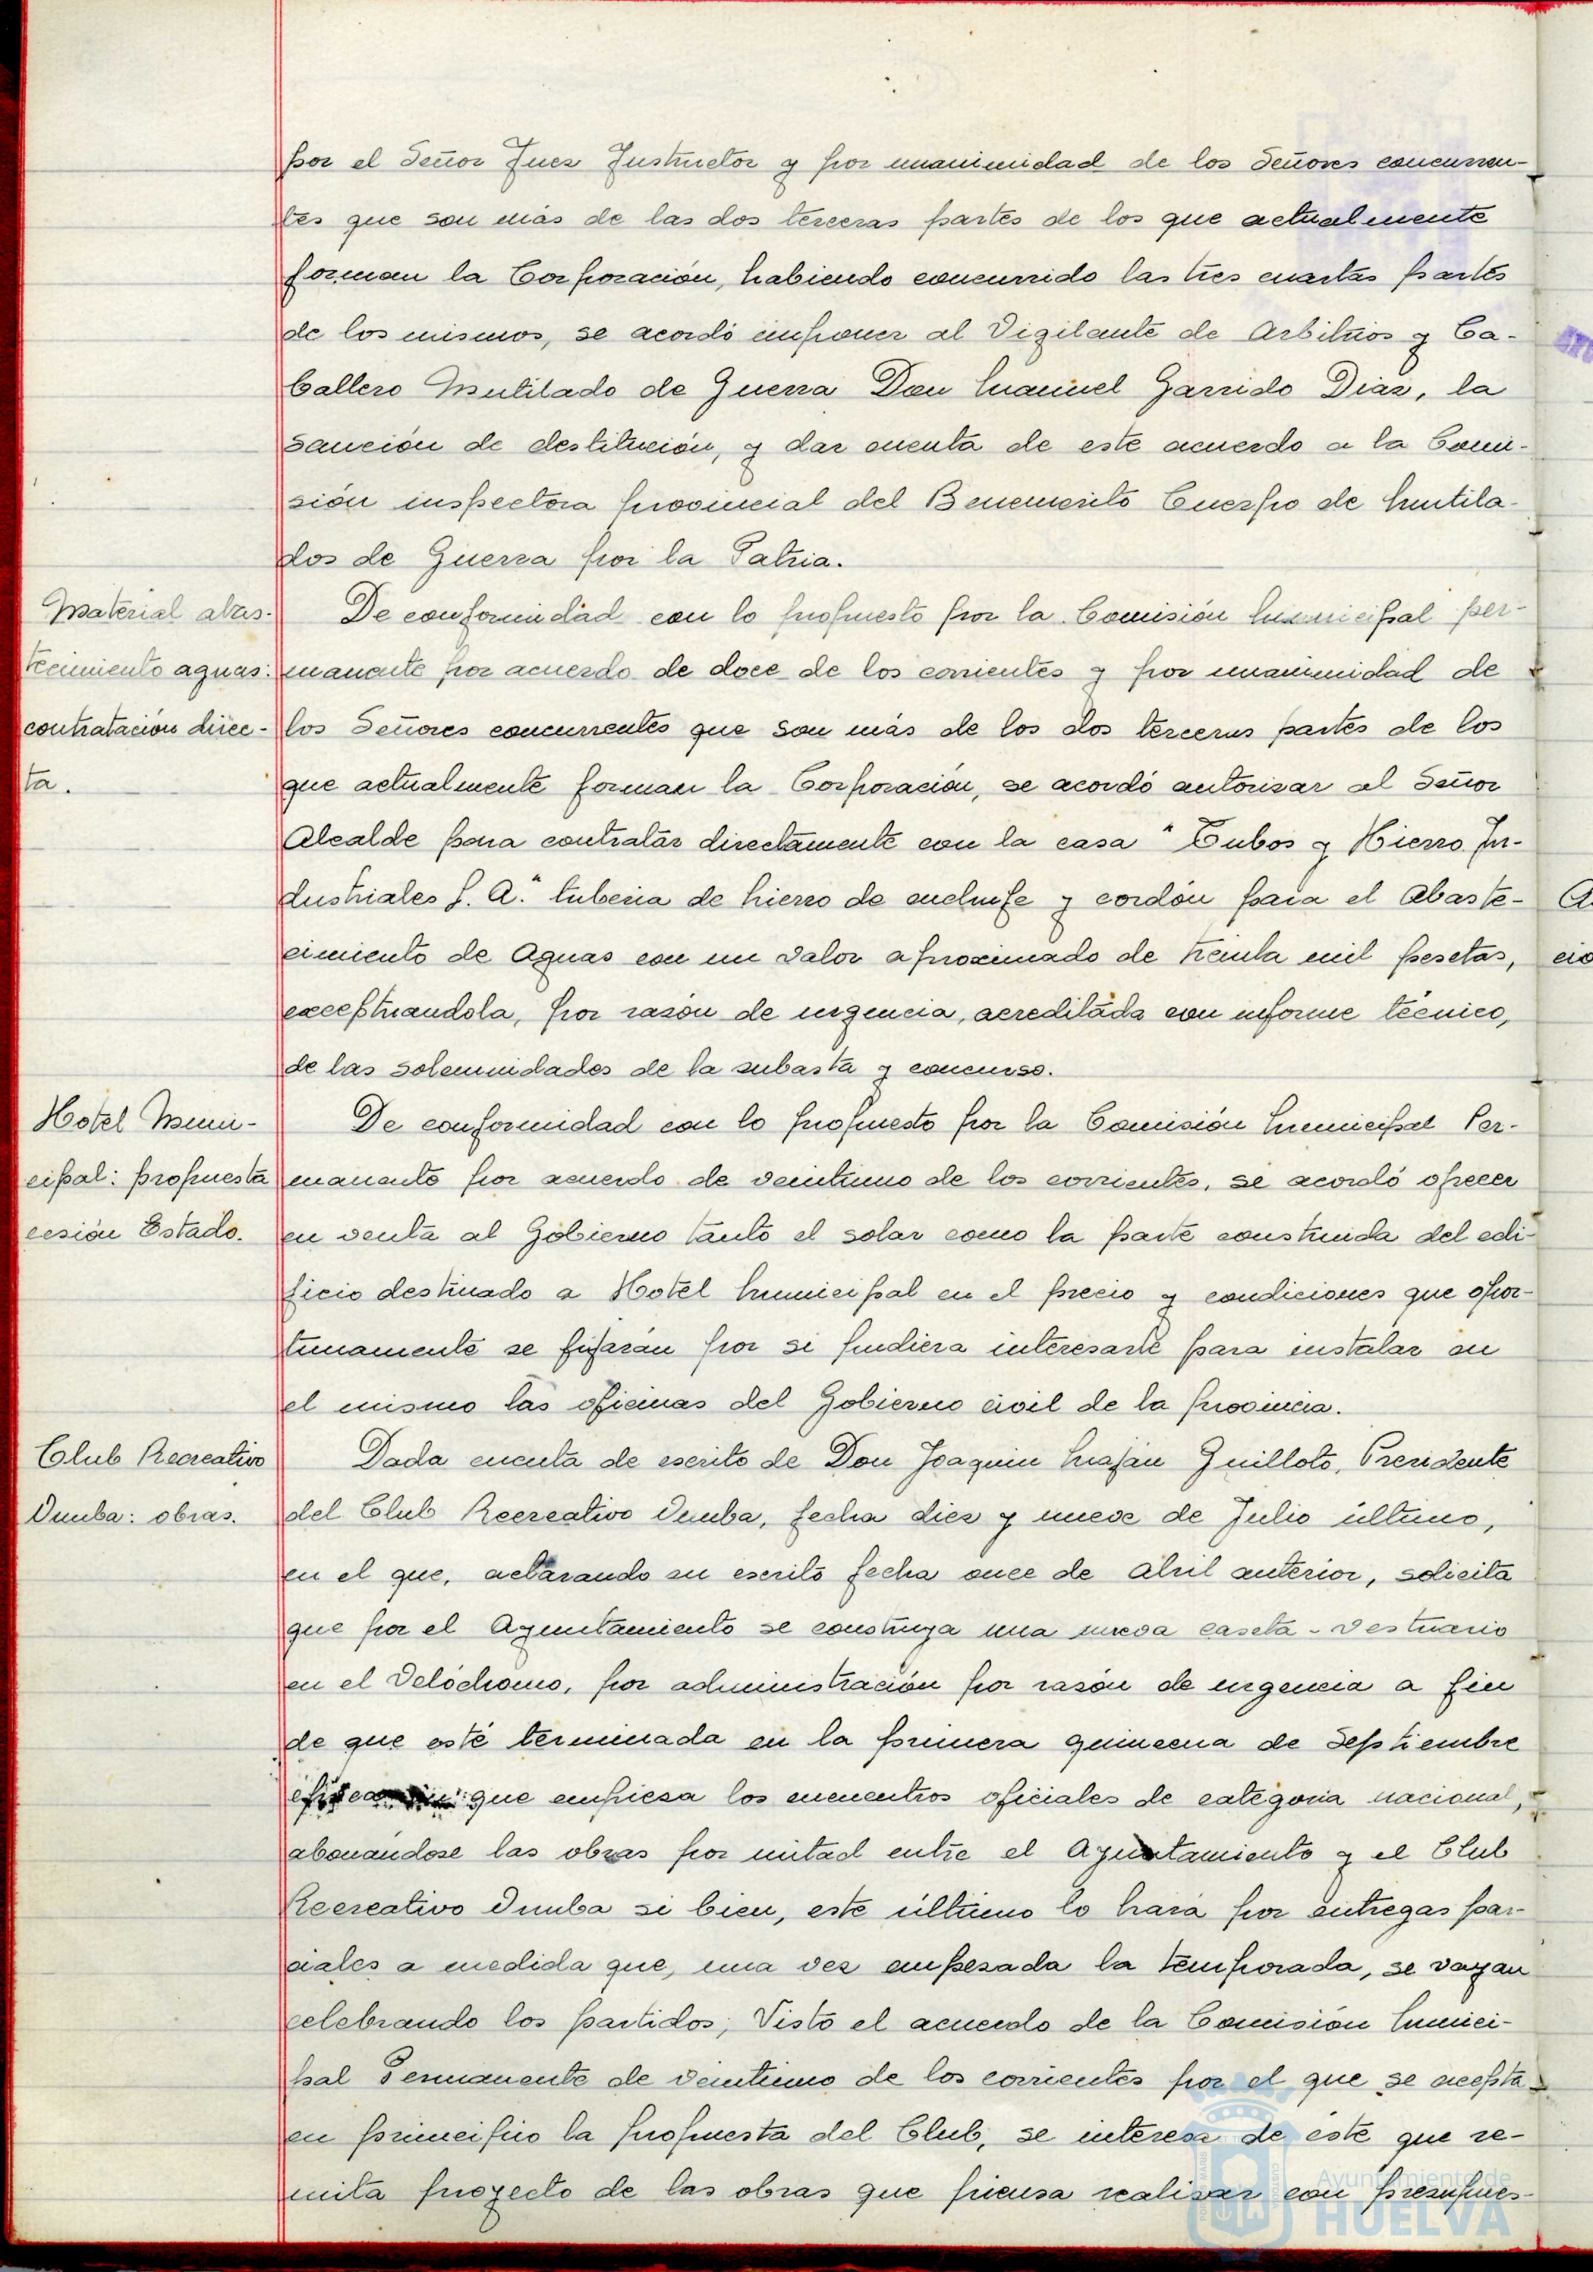 por el Señor Juez Instructor y por unanimidad de los Señores concurren-
tes que son más de las dos terceras partes de los que actualmente
forman la Corporación, habiendo concurrido las tres cuartas partes
de los mismos, se acordó imponer al Vigilante de Arbitrios y Ca-
ballero Mutilado de Guerra Don Manuel Garrido Diaz, la
sanción de destitución, y dar cuenta de este acuerdo a la Comi-
sión inspectora provincial del Benemerito Cuerpo de Mutila-
dos de Guerra por la Patria.
Material abas-
tecimiento aguas:
contratación direc-
ta.
De conformidad con lo propuesto por la Comisión Municipal per-
manante por acuerdo de doce de los corrientes y por unanimidad de
los Señores concurrentes que son más de los dos terceras partes de los
que actualmente forman la Corporación, se acordó autorizar al Señor
Alcalde para contratar directamente con la casa "Tubos y Hierro In-
dustriales S. A." tuberia de hierro de enchufe y cordón para el Abaste-
cimiento de Aguas con un valor aproximado de treinta mil pesetas,
exceptuandola, por razón de urgencia, acreditada con informe técnico,
de las solemnidades de la subasta y concurso.
Hotel Muni-
cipal: propuesta
cesión Estado.
De conformidad con lo propuesto por la Comisión Municipal Per-
manante por acuerdo de veintiuno de los corrientes, se acordó ofrecer
en venta al Gobierno tanto el solar como la parte construida del edi-
ficio destinado a Hotel Municipal en el precio y condiciones que opor-
tunamente se fijaran por si pudiera interesarle para instalar en
el mismo las oficinas del Gobierno civil de la provincia.
Club Recreativo
Onuba: obras.
Dada cuenta de escrito de Don Joaquin Guilloto, Presidente
del Club Recreativo Onuba, fecha diez y nueve de Julio último,
en el que, aclarando su escrito fecha once de Abril anterior, solicita
que por el Ayuntamiento se construya una nueva caseta-vestuario
en el Velódromo, por administración por razón de urgencia a fin
de que esté terminada en la primera quincena de Septiembre
que empieza los encuentros oficiales de categoria nacional,
abonándose las obras por mitad entre el Ayuntamiento y el Club
Recreativo Onuba si bien, este último lo hará por entregas par-
ciales a medida que, una vez empezada la temporada, se vayan
celebrando los partidos; Visto el acuerdo de la Comisión Munici-
pal Permanente de veintiuno de los corrientes por el que se acepta
en principio la propuesta del Club, se interesa de este que re-
mita proyecto de las obras que piensa realizar con presupues-
Ayuntamiento de
HUELVA